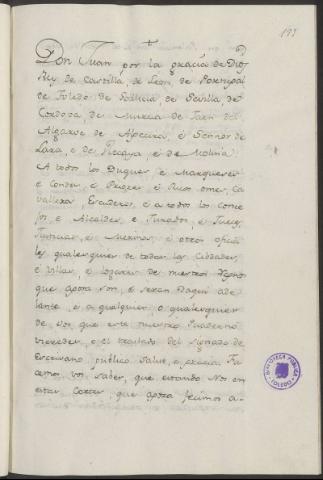 177
Don Juan por la gracia de Dios
Rey de Castilla, de Leon, de Portugal
de Toledo, de Galicia, de Sevilla, de
Cordova, de Murcia, de Jaen, del
Algarve, de Algecira, é Sennor de
Lara, é de Vizcaya, é de Molina.
A todos los Duques, é Marqueses
é Condes, é Ricos omes, Ca
valleros, Escuderos, é a todos los Conce
jos, é Alcaldes, é Jurados, é Jueces,
Justicias, é Merinos, é otros oficia
les qualesquier de todas las Cibdades,
é Villas, é logares de nuestros Regnos
que agora son, é seran daqui ade
lante, é a qualquier, o qualesquier
de vos que este nuestro Quaderno
vieredes, o el traslado del signado de
Escrivano publico Salut, é gracia. Fa
cemos vos saber, que estando Nos en
estas Cortes, que agora fecimos a-
BIBLIOTECA PUBLICA
TOLEDO